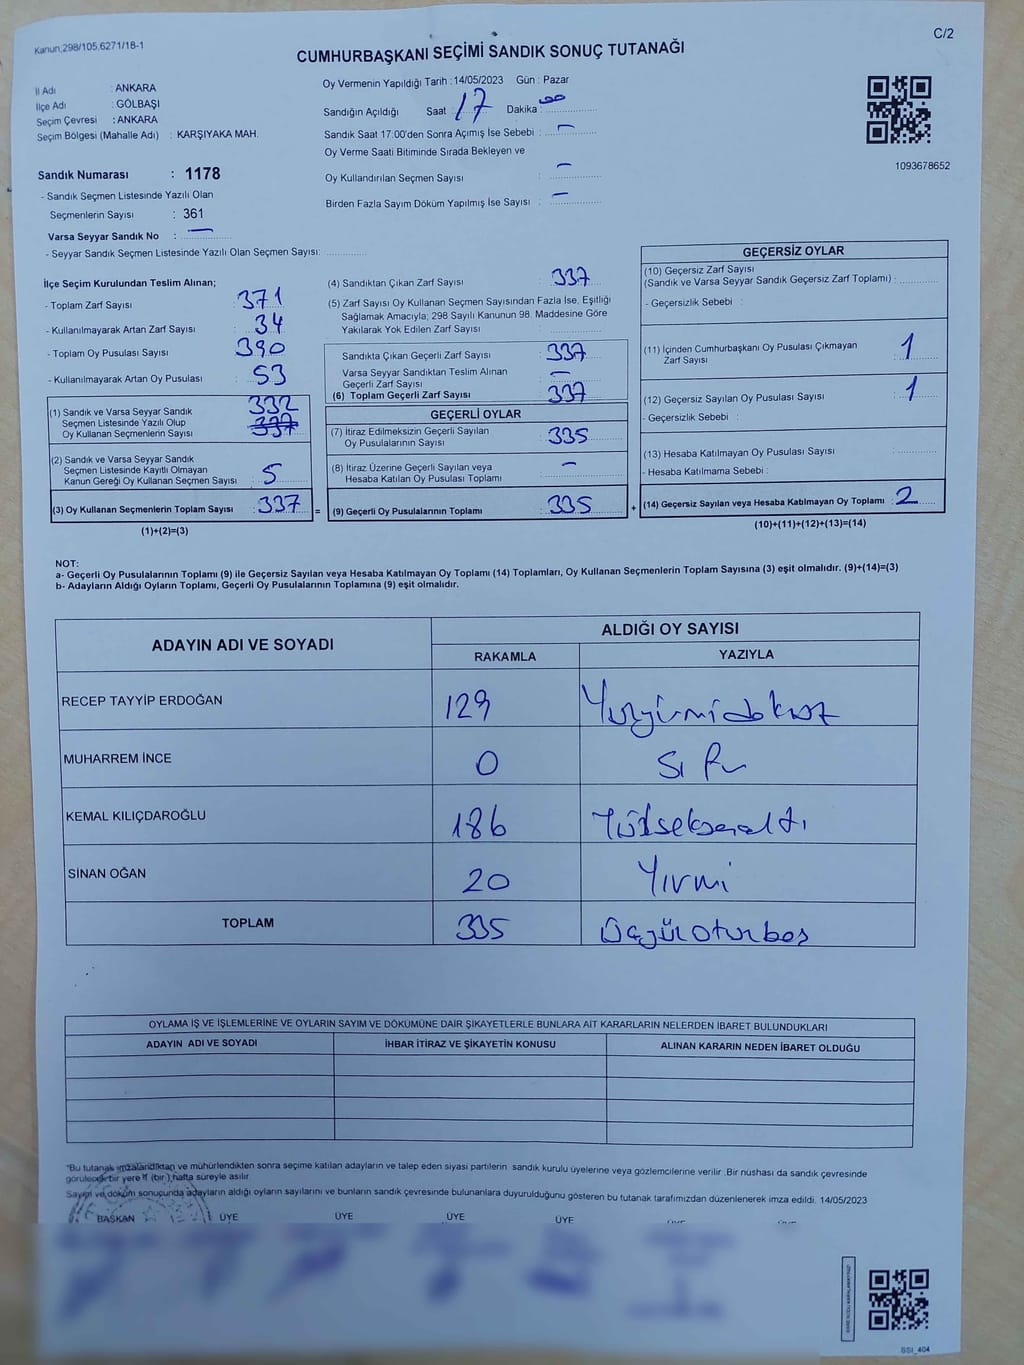 Kanun;298/105,6271/18-1
C/2
CUMHURBAŞKANI SEÇİMİ SANDIK SONUÇ TUTANAĞI
İl Adı : ANKARA
İlçe Adı : GÖLBAŞI
Seçim Çevresi : ANKARA
Seçim Bölgesi (Mahalle Adı) : KARŞIYAKA MAH.
Sandık Numarası : 1178
- Sandık Seçmen Listesinde Yazılı Olan
Seçmenlerin Sayısı : 361
Varsa Seyyar Sandık No : —
- Seyyar Sandık Seçmen Listesinde Yazılı Olan Seçmen Sayısı:
Oy Vermenin Yapıldığı Tarih : 14/05/2023 Gün : Pazar
Sandığın Açıldığı Saat : 17 Dakika : 00
Sandık Saat 17:00'den Sonra Açımış İse Sebebi : —
Oy Verme Saati Bitiminde Sırada Bekleyen ve
Oy Kullandırılan Seçmen Sayısı : —
Birden Fazla Sayım Döküm Yapılmış İse Sayısı : —
1093678652
İlçe Seçim Kurulundan Teslim Alınan;
- Toplam Zarf Sayısı : 371
- Kullanılmayarak Artan Zarf Sayısı : 34
- Toplam Oy Pusulası Sayısı : 390
- Kullanılmayarak Artan Oy Pusulası : 53
(1) Sandık ve Varsa Seyyar Sandık
Seçmen Listesinde Yazılı Olup
Oy Kullanan Seçmenlerin Sayısı : 332 337
(2) Sandık ve Varsa Seyyar Sandık
Seçmen Listesinde Kayıtlı Olmayan
Kanun Gereği Oy Kullanan Seçmen Sayısı : 5
(3) Oy Kullanan Seçmenlerin Toplam Sayısı : 337 =
(1)+(2)=(3)
(4) Sandıktan Çıkan Zarf Sayısı : 337
(5) Zarf Sayısı Oy Kullanan Seçmen Sayısından Fazla İse, Eşitliği
Sağlamak Amacıyla; 298 Sayılı Kanunun 98. Maddesine Göre
Yakılarak Yok Edilen Zarf Sayısı :
Sandıkta Çıkan Geçerli Zarf Sayısı : 337
Varsa Seyyar Sandıktan Teslim Alınan
Geçerli Zarf Sayısı : —
(6) Toplam Geçerli Zarf Sayısı : 337
GEÇERLİ OYLAR
(7) İtiraz Edilmeksizin Geçerli Sayılan
Oy Pusulalarının Sayısı : 335
(8) İtiraz Üzerine Geçerli Sayılan veya
Hesaba Katılan Oy Pusulası Toplamı : —
(9) Geçerli Oy Pusulalarının Toplamı : 335 +
GEÇERSİZ OYLAR
(10) Geçersiz Zarf Sayısı
(Sandık ve Varsa Seyyar Sandık Geçersiz Zarf Toplamı) :
- Geçersizlik Sebebi :
(11) İçinden Cumhurbaşkanı Oy Pusulası Çıkmayan
Zarf Sayısı : 1
(12) Geçersiz Sayılan Oy Pusulası Sayısı : 1
- Geçersizlik Sebebi :
(13) Hesaba Katılmayan Oy Pusulası Sayısı :
- Hesaba Katılmama Sebebi :
(14) Geçersiz Sayılan veya Hesaba Katılmayan Oy Toplamı : 2
(10)+(11)+(12)+(13)=(14)
NOT:
a- Geçerli Oy Pusulalarının Toplamı (9) ile Geçersiz Sayılan veya Hesaba Katılmayan Oy Toplamı (14) Toplamları, Oy Kullanan Seçmenlerin Toplam Sayısına (3) eşit olmalıdır. (9)+(14)=(3)
b- Adayların Aldığı Oyların Toplamı, Geçerli Oy Pusulalarının Toplamına (9) eşit olmalıdır.
ADAYIN ADI VE SOYADI
ALDIĞI OY SAYISI
RAKAMLA YAZIYLA
RECEP TAYYİP ERDOĞAN 129 Yüzyirmidokuz
MUHARREM İNCE 0 Sıfır
KEMAL KILIÇDAROĞLU 186 Yüzseksenaltı
SİNAN OĞAN 20 Yirmi
TOPLAM 335 Üçyüzotuzbeş
OYLAMA İŞ VE İŞLEMLERİNE VE OYLARIN SAYIM VE DÖKÜMÜNE DAİR ŞİKAYETLERLE BUNLARA AİT KARARLARIN NELERDEN İBARET BULUNDUKLARI
ADAYIN ADI VE SOYADI İHBAR İTİRAZ VE ŞİKAYETİN KONUSU ALINAN KARARIN NEDEN İBARET OLDUĞU
*Bu tutanak imzalandıktan ve mühürlendikten sonra seçime katılan adayların ve talep eden siyasi partilerin sandık kurulu üyelerine veya gözlemcilerine verilir. Bir nüshası da sandık çevresinde
görülecek bir yere 1 (bir) hafta süreyle asılır.
Sayım ve döküm sonucunda adayların aldığı oyların sayılarını ve bunların sandık çevresinde bulunanlara duyurulduğunu gösteren bu tutanak tarafımızdan düzenlenerek imza edildi. 14/05/2023
BAŞKAN ÜYE ÜYE ÜYE ÜYE
SSI_404